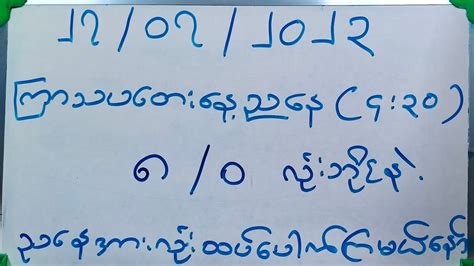 ၂၇/၀၇/၂၀၂၃
ကြာသပတေးနေ့ညနေ(၄:၃၀)
၈/၀ လုံးဘိုင်နဲ့
ညနေအားလုံးထပ်ပေါက်ကြမယ်နော်